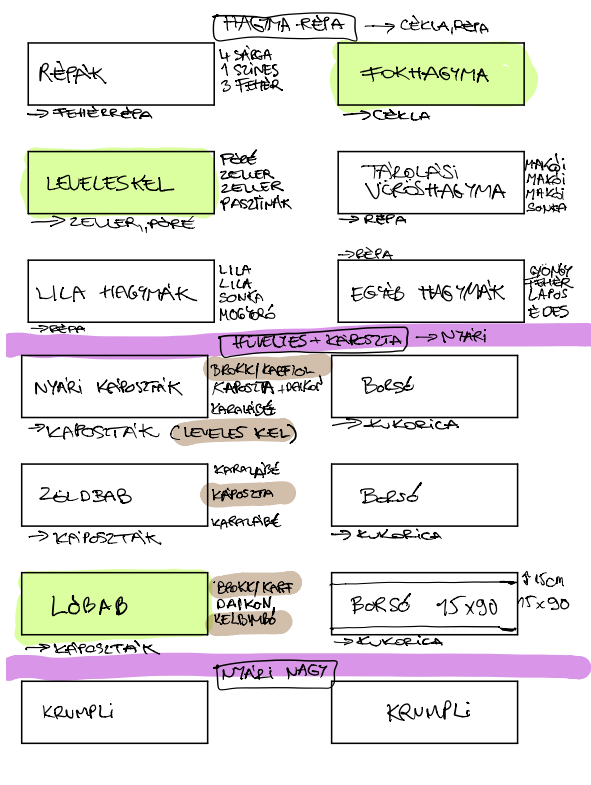 HAGYMA-RÉPA → CÉKLA, RÉPA
RÉPÁK
4 SÁRGA
1 SZINES
3 FEHÉR
→ FEHÉRRÉPA
FOKHAGYMA
→ CÉKLA
LEVELESKEL
PÓRÉ
ZELLER
ZELLER
PASZTINÁK
→ ZELLER, PÓRÉ
TÁROLÁSI
VÖRÖSHAGYMA
MAKÓI
MAKÓI
MAKÓI
SONKA
→ RÉPA
LILA HAGYMÁK
LILA
LILA
SONKA
MOGYORÓ
→ RÉPA
→ RÉPA
EGYÉB HAGYMÁK
GYÖNGY
FEHÉR
LAPOS
ÉDES
HÜVELYES + KÁPOSZTA → NYÁRI
NYÁRI KÁPOSZTÁK
BROKK/KARFIOL
KÁPOSZTA + DAIKON
KARALÁBÉ
→ KÁPOSZTÁK (LEVELES KEL)
BORSÓ
→ KUKORICA
ZÖLDBAB
KARALÁBÉ
KÁPOSZTA
KARALÁBÉ
→ KÁPOSZTÁK
BORSÓ
→ KUKORICA
LÓBAB
BROKK/KARF
DAIKON,
KELBIMBÓ
→ KÁPOSZTÁK
BORSÓ 15x90
15CM
15x90
→ KUKORICA
NYÁRI NAGY
KRUMPLI
KRUMPLI